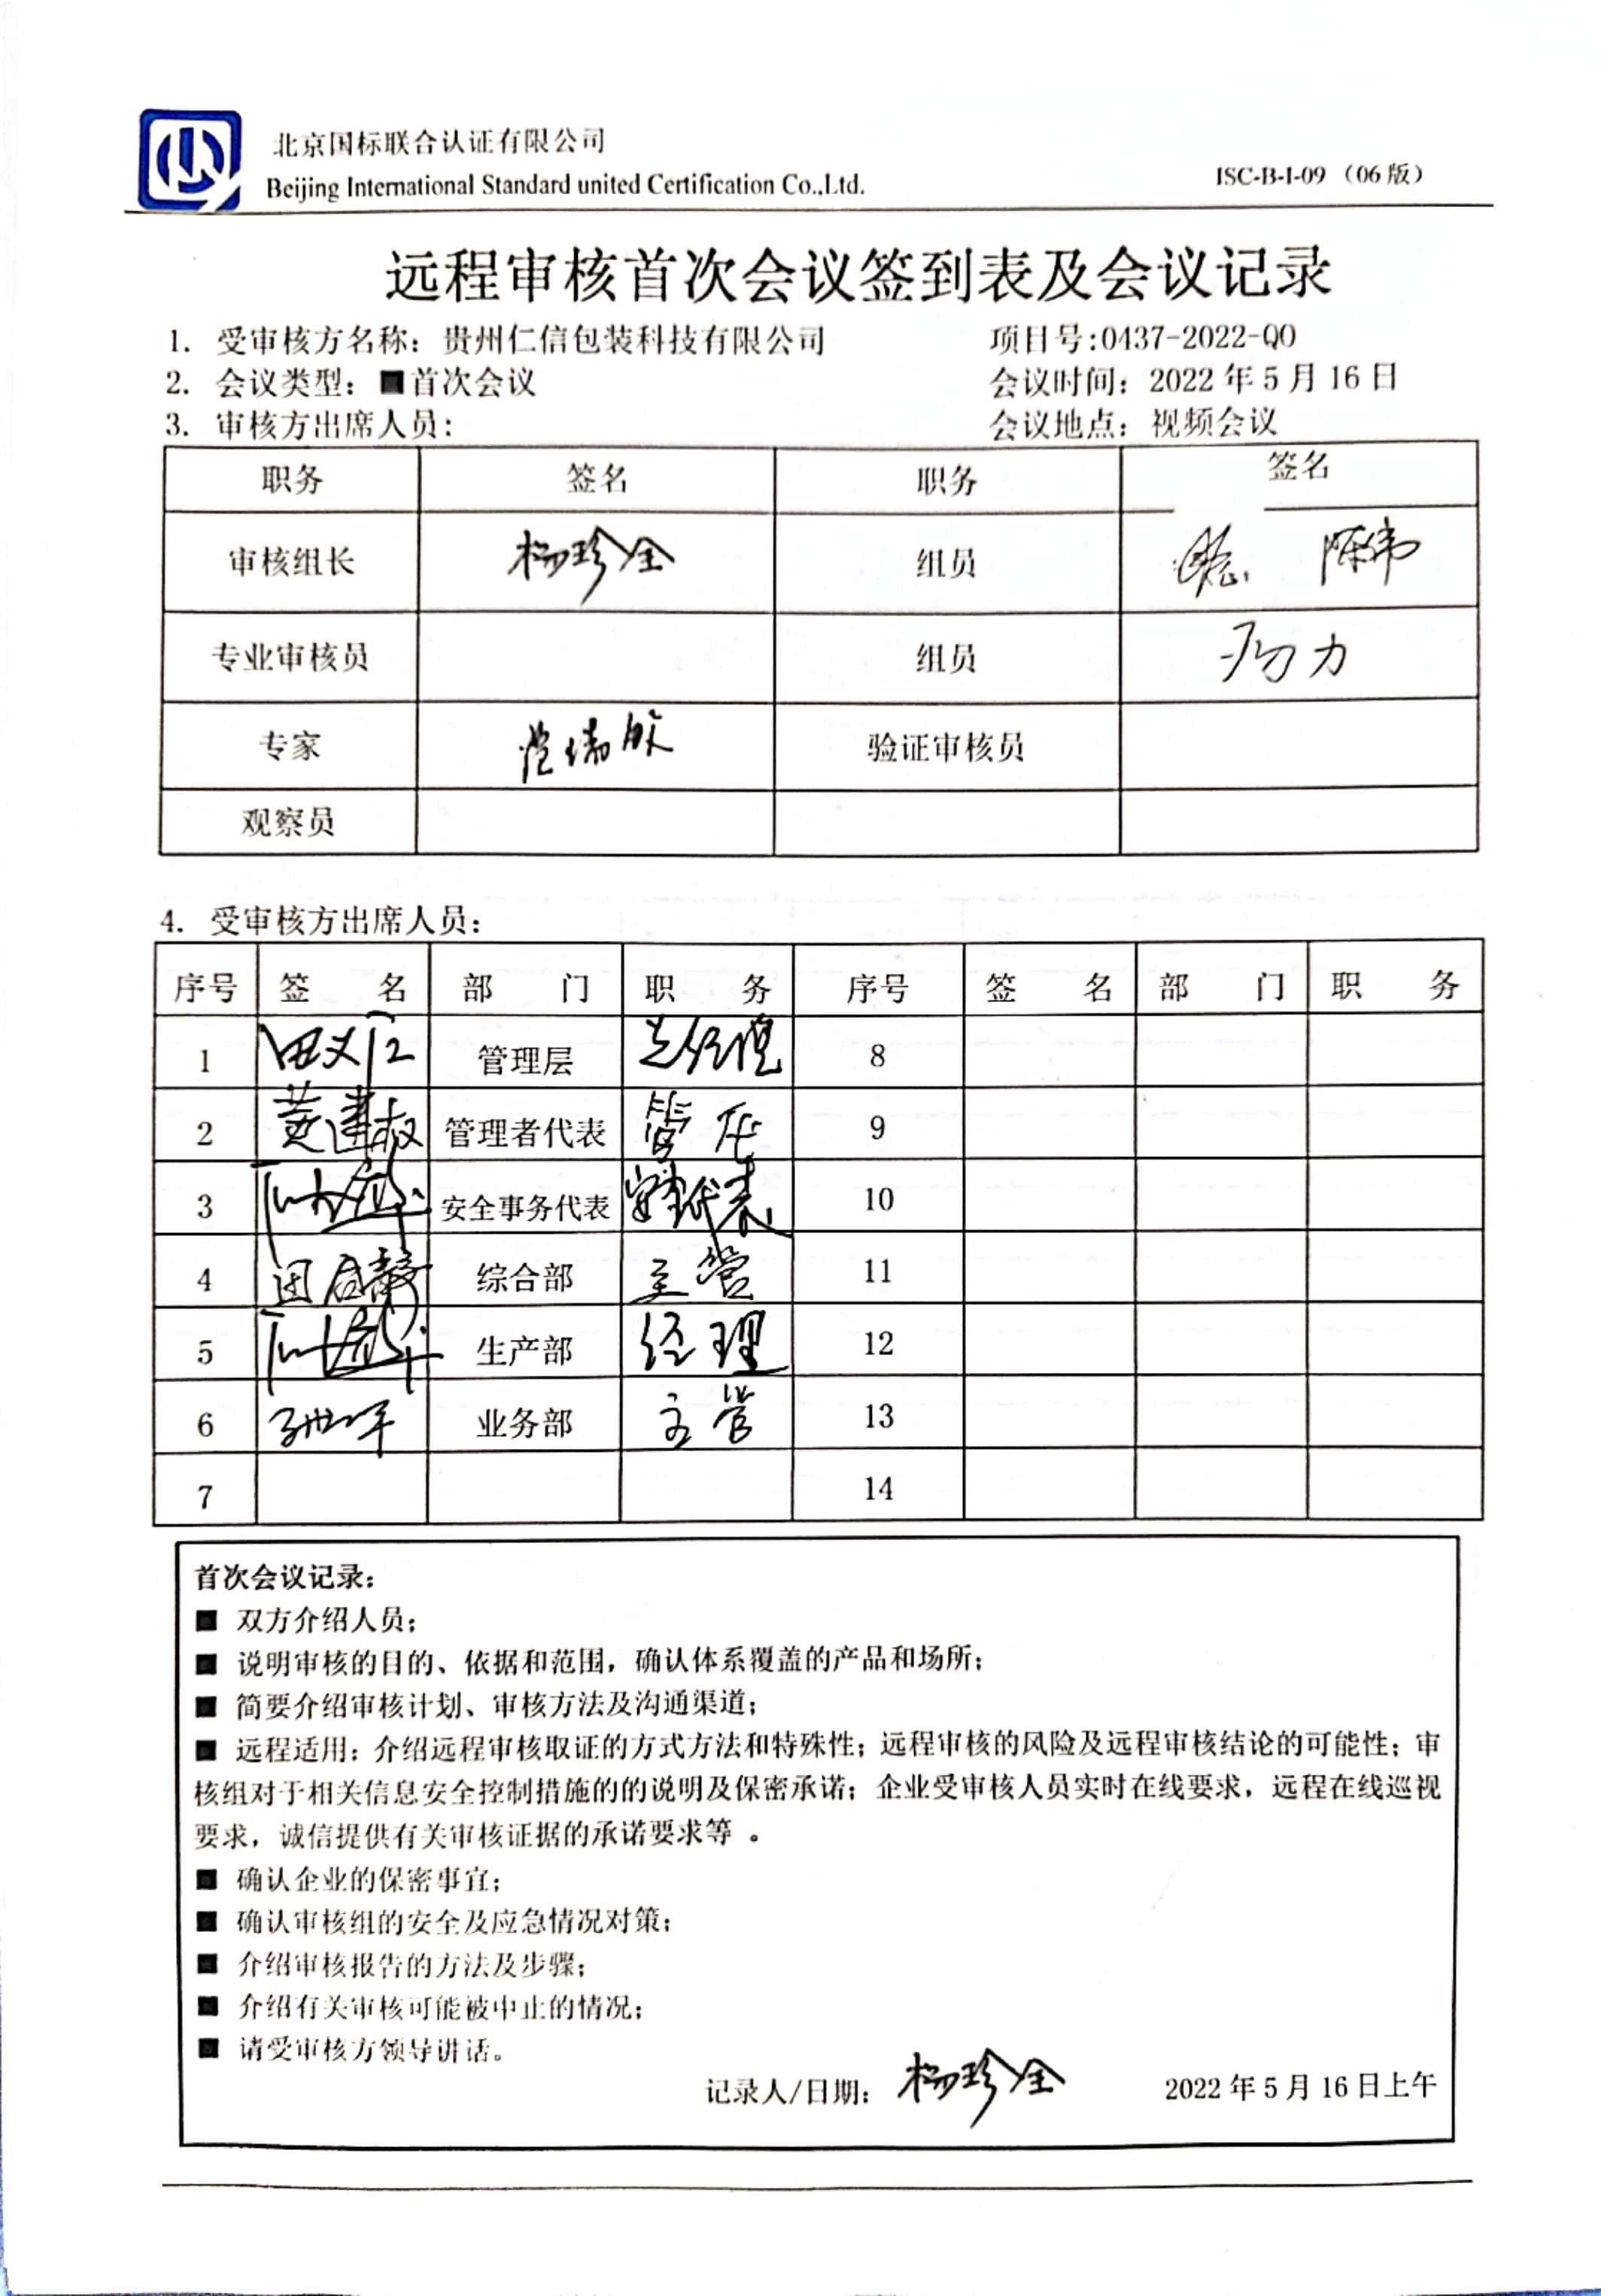 北京国标联合认证有限公司
Beijing International Standard united Certification Co.,Ltd.
ISC-B-I-09（06版）
远程审核首次会议签到表及会议记录
1. 受审核方名称：贵州仁信包装科技有限公司 项目号:0437-2022-QO
2. 会议类型：■首次会议 会议时间：2022年5月16日
3. 审核方出席人员： 会议地点：视频会议
职务 签名 职务 签名
审核组长 杨珍全 组员 陈伟
专业审核员 组员
专家 验证审核员
观察员
4. 受审核方出席人员：
序号 签 名 部 门 职 务 序号 签 名 部 门 职 务
1 田义江 管理层 总经理 8
2 黄建权 管理者代表 管代 9
3 安全事务代表 10
4 田启静 综合部 主管 11
5 生产部 经理 12
6 业务部 主管 13
7 14
首次会议记录：
■ 双方介绍人员；
■ 说明审核的目的、依据和范围，确认体系覆盖的产品和场所；
■ 简要介绍审核计划、审核方法及沟通渠道；
■ 远程适用：介绍远程审核取证的方式方法和特殊性；远程审核的风险及远程审核结论的可能性；审
核组对于相关信息安全控制措施的的说明及保密承诺；企业受审核人员实时在线要求，远程在线巡视
要求，诚信提供有关审核证据的承诺要求等 。
■ 确认企业的保密事宜；
■ 确认审核组的安全及应急情况对策；
■ 介绍审核报告的方法及步骤；
■ 介绍有关审核可能被中止的情况；
■ 请受审核方领导讲话。
记录人/日期： 杨珍全 2022年5月16日上午